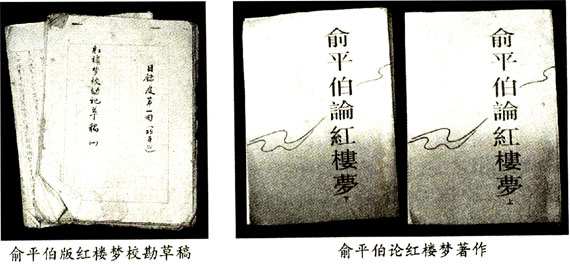 红楼梦校勘记草稿 (一)
目录及第一回
俞平伯版红楼梦校勘草稿
俞平伯論紅樓夢 下
俞平伯論紅樓夢 上
俞平伯论红楼梦著作